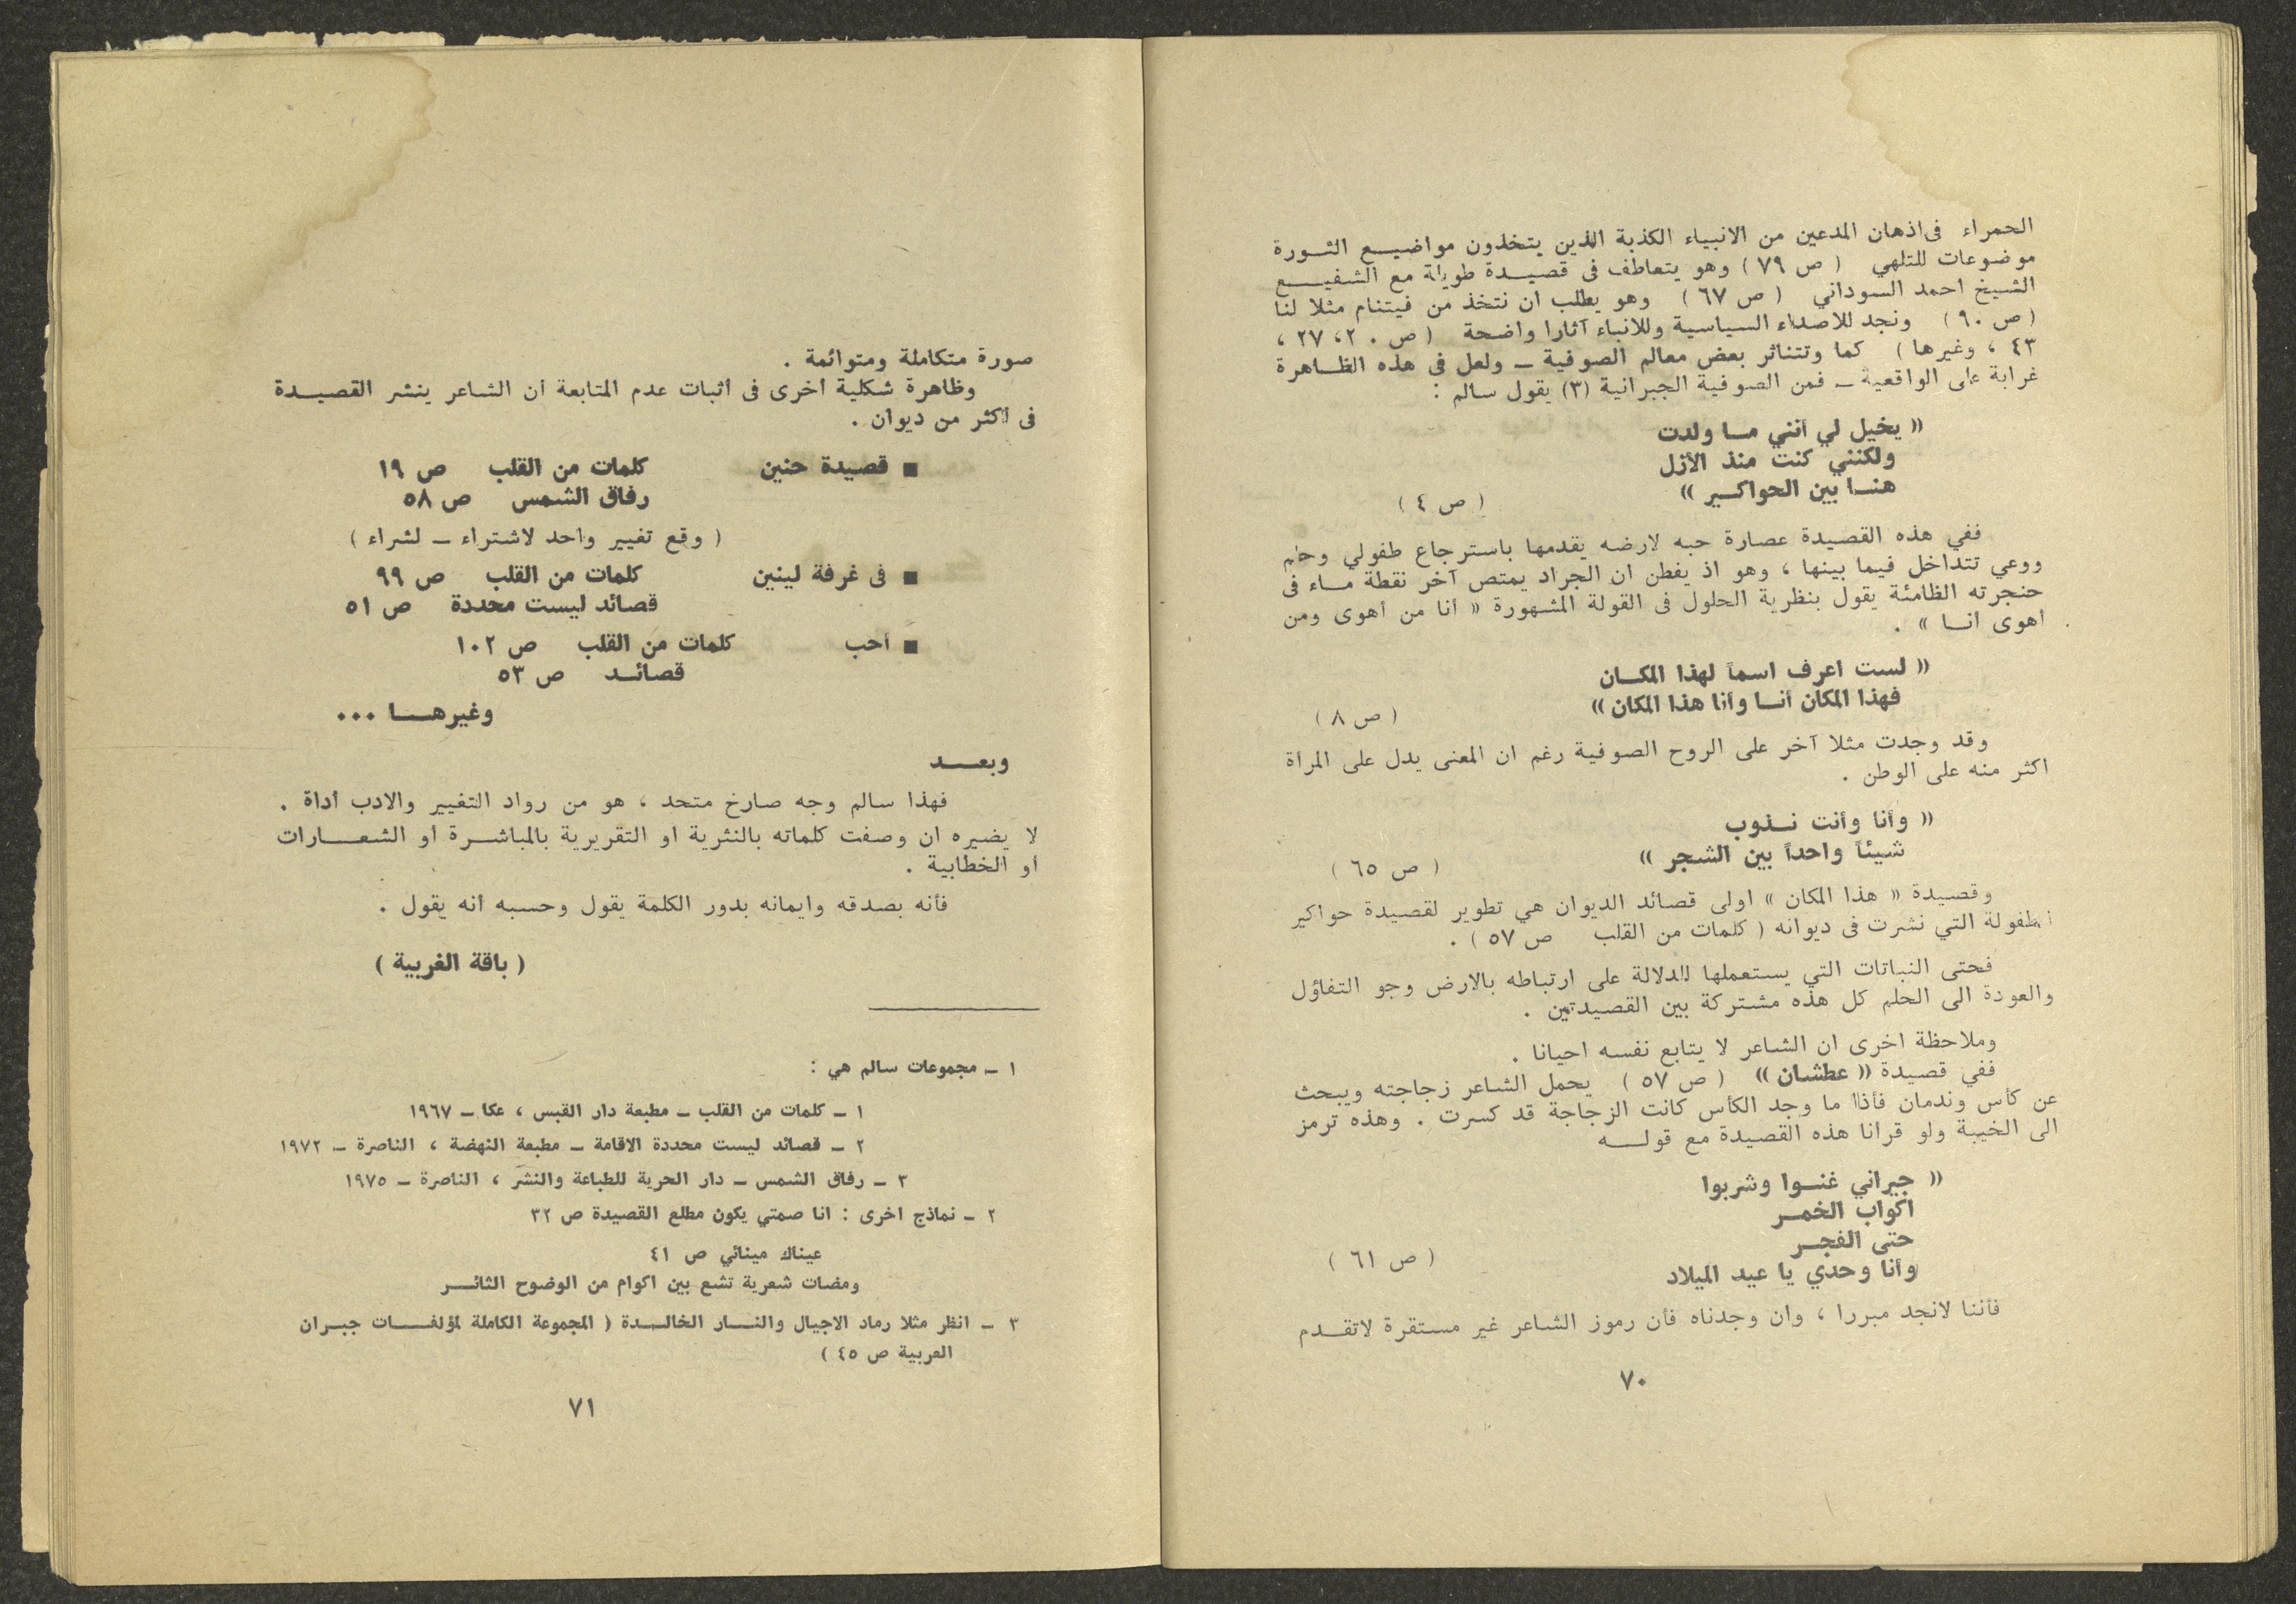 الحمراء فى اذهان المدعين من الانبياء الكذبة الذين يتخذون مواضيع الثورة
موضوعات للتلهي ( ص ٧٩ ) وهو يتعاطف فى قصيدة طويلة مع الشفيع
الشيخ احمد السوداني ( ص ٦٧ ) وهو يطلب ان نتخذ من فيتنام مثلا لنا
( ص ٩٠ ) ونجد للاصداء السياسية وللانباء آثارا واضحة ( ص ٢٠، ٢٧ ،
٤٣ ، وغيرها ) كما وتتناثر بعض معالم الصوفية ــ ولعل فى هذه الظاهرة
غرابة على الواقعية ــ فمن الصوفية الجبرانية (٣) يقول سالم :
« يخيل لي أنني ما ولدت
ولكنني كنت منذ الأزل
هنا بين الحواكير »
( ص ٤ )
ففي هذه القصيدة عصارة حبه لارضه يقدمها باسترجاع طفولي وحلم
ووعي تتداخل فيما بينها ، وهو اذ يفطن ان الجراد يمتص آخر نقطة ماء فى
حنجرته الظامئة يقول بنظرية الحلول فى القولة المشهورة « أنا من أهوى ومن
أهوى أنا » .
« لست اعرف اسماً لهذا المكان
فهذا المكان أنا وأنا هذا المكان »
( ص ٨ )
وقد وجدت مثلا آخر على الروح الصوفية رغم ان المعنى يدل على المرأة
اكثر منه على الوطن .
« وأنا وأنت نذوب
شيئاً واحداً بين الشجر »
( ص ٦٥ )
وقصيدة « هذا المكان » اولى قصائد الديوان هي تطوير لقصيدة حواكير
الطفولة التي نشرت فى ديوانه ( كلمات من القلب ص ٥٧ ) .
فحتى النباتات التي يستعملها للدلالة على ارتباطه بالارض وجو التفاؤل
والعودة الى الحلم كل هذه مشتركة بين القصيدتين .
وملاحظة اخرى ان الشاعر لا يتابع نفسه احيانا .
ففي قصيدة « عطشان » ( ص ٥٧ ) يحمل الشاعر زجاجته ويبحث
عن كأس وندمان فأذا ما وجد الكأس كانت الزجاجة قد كسرت . وهذه ترمز
الى الخيبة ولو قرانا هذه القصيدة مع قوله
« جيراني غنوا وشربوا
اكواب الخمر
حتى الفجر
وأنا وحدي يا عيد الميلاد
( ص ٦١ )
فأننا لانجد مبررا ، وان وجدناه فأن رموز الشاعر غير مستقرة لاتقدم
٧٠
صورة متكاملة ومتوائمة .
وظاهرة شكلية أخرى فى أثبات عدم المتابعة أن الشاعر ينشر القصيدة
فى أكثر من ديوان .
■ قصيدة حنين كلمات من القلب ص ١٩
رفاق الشمس ص ٥٨
( وقع تغيير واحد لاشتراء ــ لشراء )
■ فى غرفة لينين كلمات من القلب ص ٩٩
قصائد ليست محددة ص ٥١
■ أحب كلمات من القلب ص ١٠٢
قصائد ص ٥٣
وغيرها ...
وبعد
فهذا سالم وجه صارخ متحد ، هو من رواد التغيير والادب أداة .
لا يضيره ان وصفت كلماته بالنثرية او التقريرية بالمباشرة او الشعارات
او الخطابية .
فأنه بصدقه وايمانه بدور الكلمة يقول وحسبه أنه يقول .
( باقة الغربية )
١ ــ مجموعات سالم هي :
١ ــ كلمات من القلب ــ مطبعة دار القبس ، عكا ــ ١٩٦٧
٢ ــ قصائد ليست محددة الاقامة ــ مطبعة النهضة ، الناصرة ــ ١٩٧٢
٣ ــ رفاق الشمس ــ دار الحرية للطباعة والنشر ، الناصرة ــ ١٩٧٥
٢ ــ نماذج اخرى : انا صمتي يكون مطلع القصيدة ص ٣٢
عيناك مينائي ص ٤١
ومضات شعرية تشع بين اكوام من الوضوح الثائر
٣ ــ انظر مثلا رماد الاجيال والنار الخالدة ( المجموعة الكاملة لمؤلفات جبران
العربية ص ٤٥ )
٧١